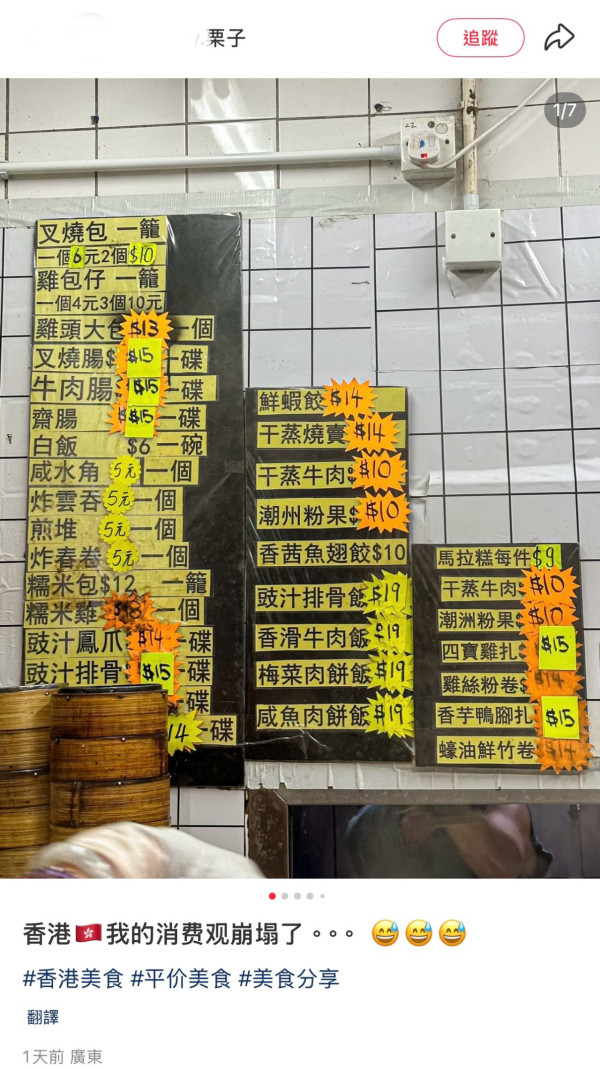 栗子
追蹤
1/7
叉燒包 一籠
一個6元2個$10
雞包仔 一籠
一個4元3個10元
雞頭大包$13一個
叉燒腸$15一碟
牛肉腸$15一碟
齋腸$15一碟
白飯 $6一碗
咸水角5元一個
炸雲吞5元一個
煎堆5元一個
炸春卷5元一個
糯米包$12 一籠
糯米雞 一個
豉汁鳳爪$14一碟
豉汁排骨$15一碟
碟
14一碟
鮮蝦餃$14
干蒸燒賣$14
干蒸牛肉$10
潮州粉果$10
香茜魚翅餃$10
豉汁排骨飯$19
香滑牛肉飯$19
梅菜肉餅飯$19
咸魚肉餅飯$19
馬拉糕每件$9
干蒸牛肉$10
潮洲粉果$10
四寶雞扎$15
雞絲粉卷$14
香芋鴨腳扎$15
蠔油鮮竹卷$14
香港🇭🇰我的消费观崩塌了。。。 😅😅😅
#香港美食 #平价美食 #美食分享
翻譯
1天前 廣東